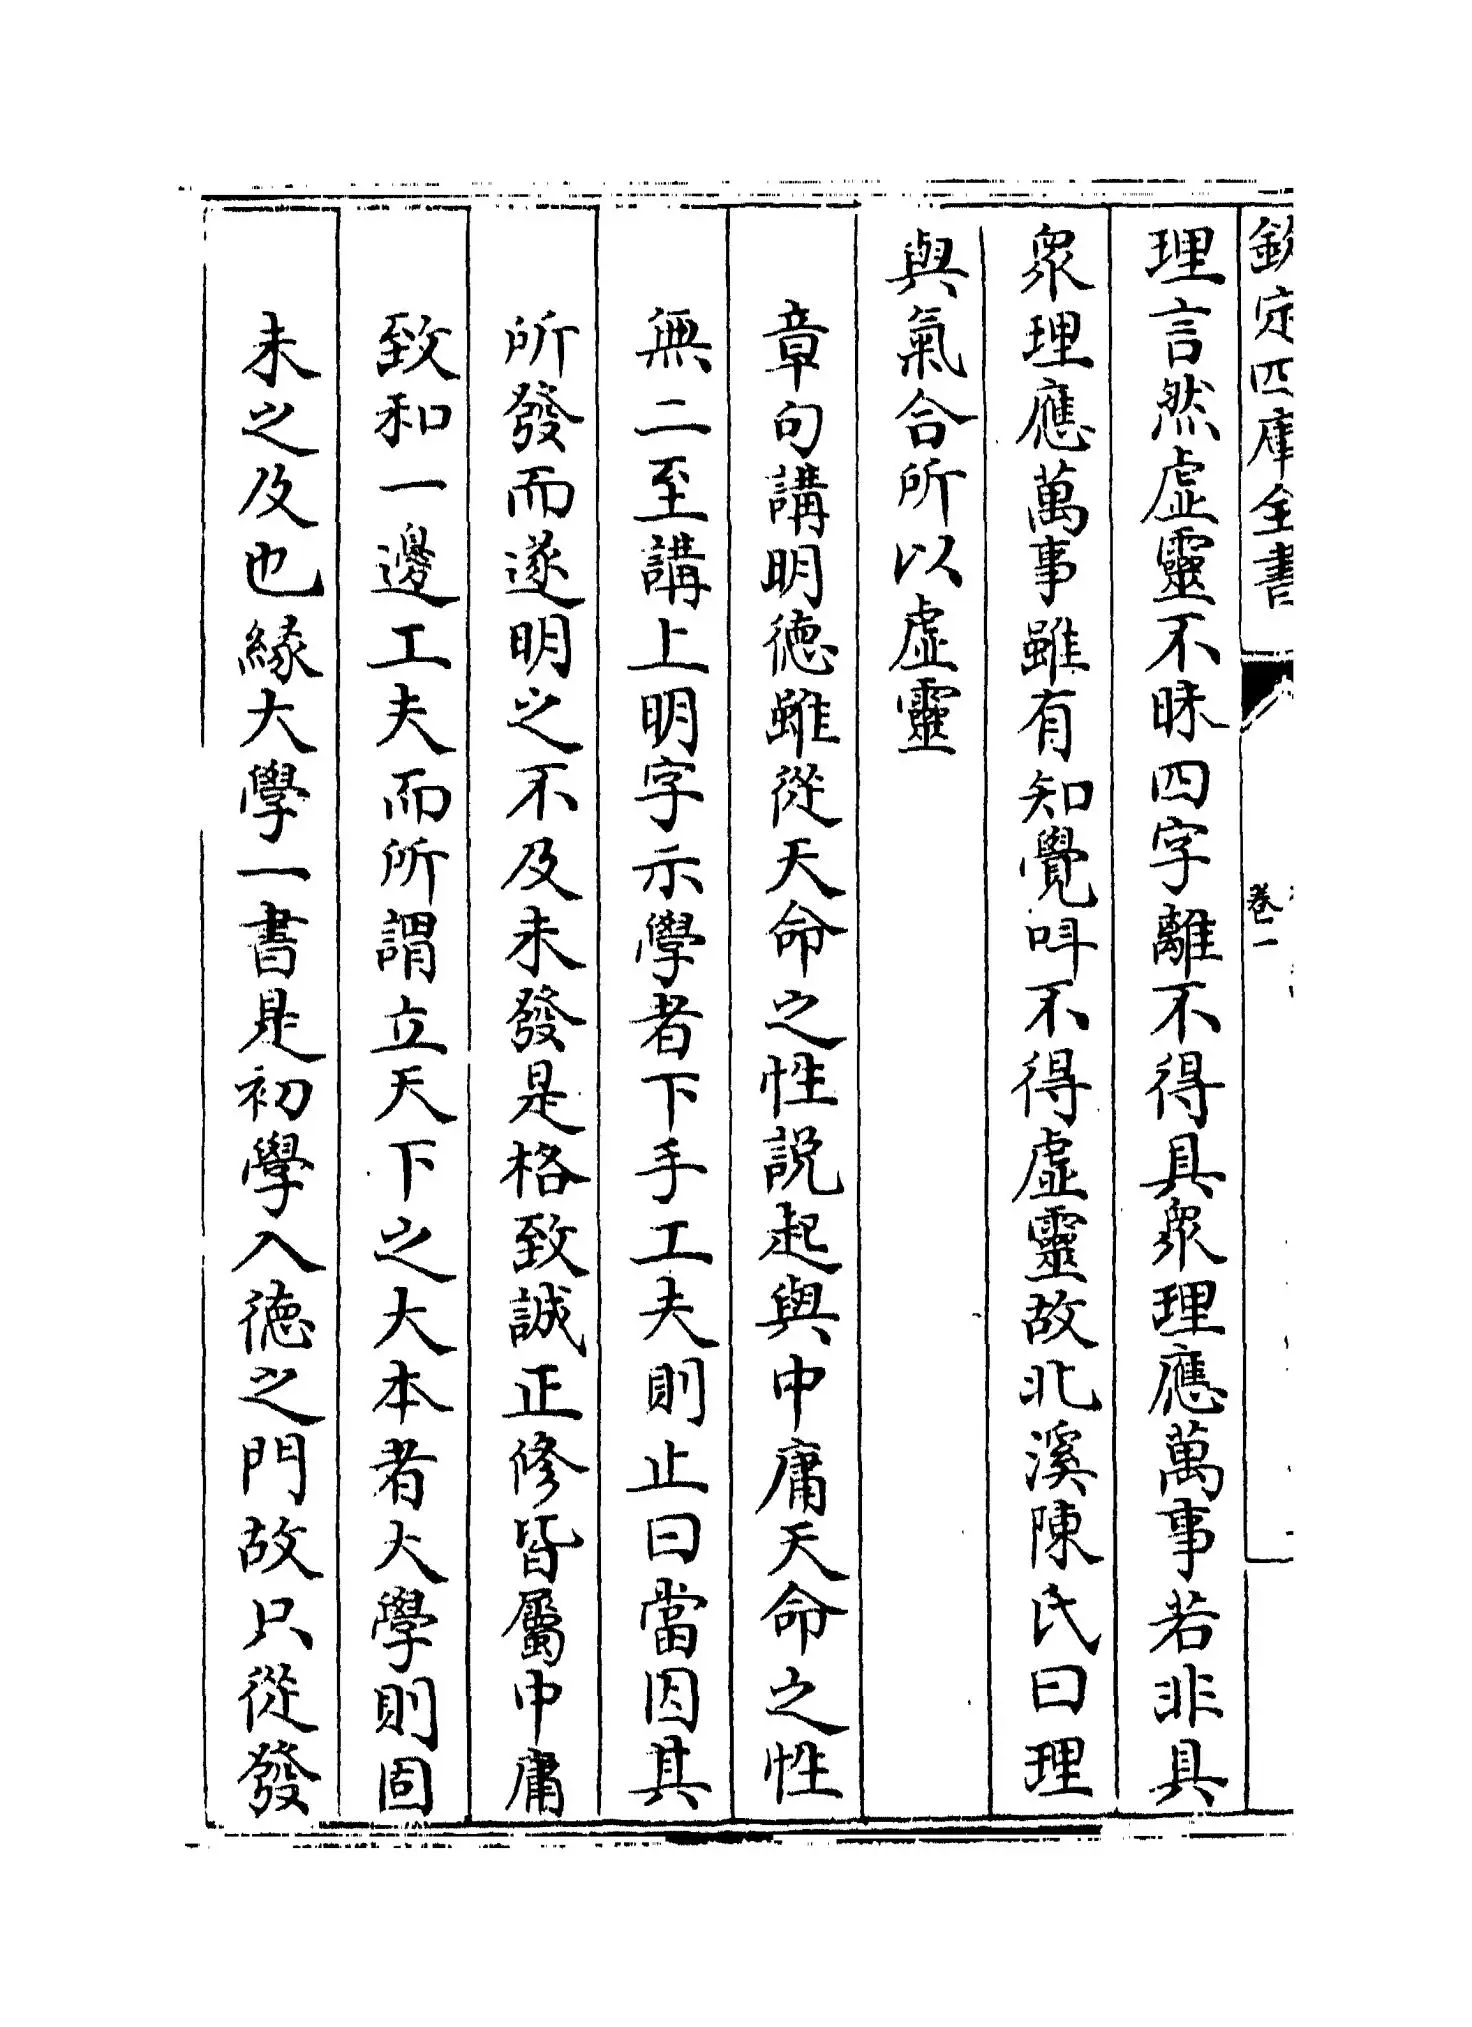 欽定四庫全書
卷一
理言然虛靈不昧四字離不得具衆理應萬事若非具
衆理應萬事雖有知覺呌不得虛靈故北溪陳氏曰理
與氣合所以虛靈
章句講明德雖從天命之性說起與中庸天命之性
無二至講上明字示學者下手工夫則止曰當因其
所發而遂明之不及未發是格致誠正修皆屬中庸
致和一邊工夫而所謂立天下之大本者大學則固
未之及也緣大學一書是初學入德之門故只從發